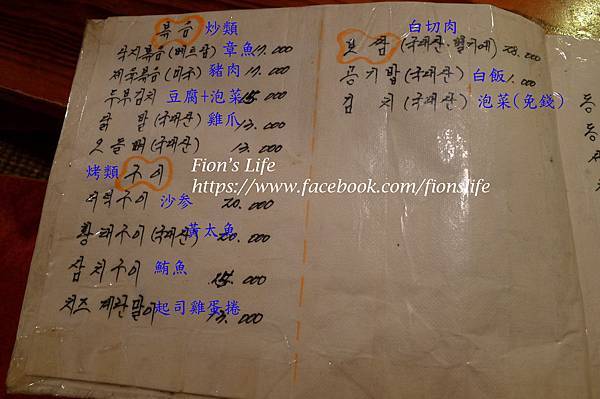 볶음 炒類
낙지볶음 (베트남) 章魚 17.000
제육볶음 (미국) 豬肉 17.000
두부김치 豆腐+泡菜 15.000
닭 발 (국내산) 雞爪 13.000
오돌뼈 (국내산) 13.000
烤類 구이
더덕구이 沙参 20.000
황태구이 (국내산) 黃太魚 20.000
삼치구이 鮪魚 15.000
치즈 계란말이 起司雞蛋捲 13.000
白切肉
보쌈 (국내산·벨기에) 28.000
공기밥 (국내산) 白飯 1.000
김 치 (국내산) 泡菜(免錢)
동
동
Fion's Life
https://www.facebook.com/fionslife